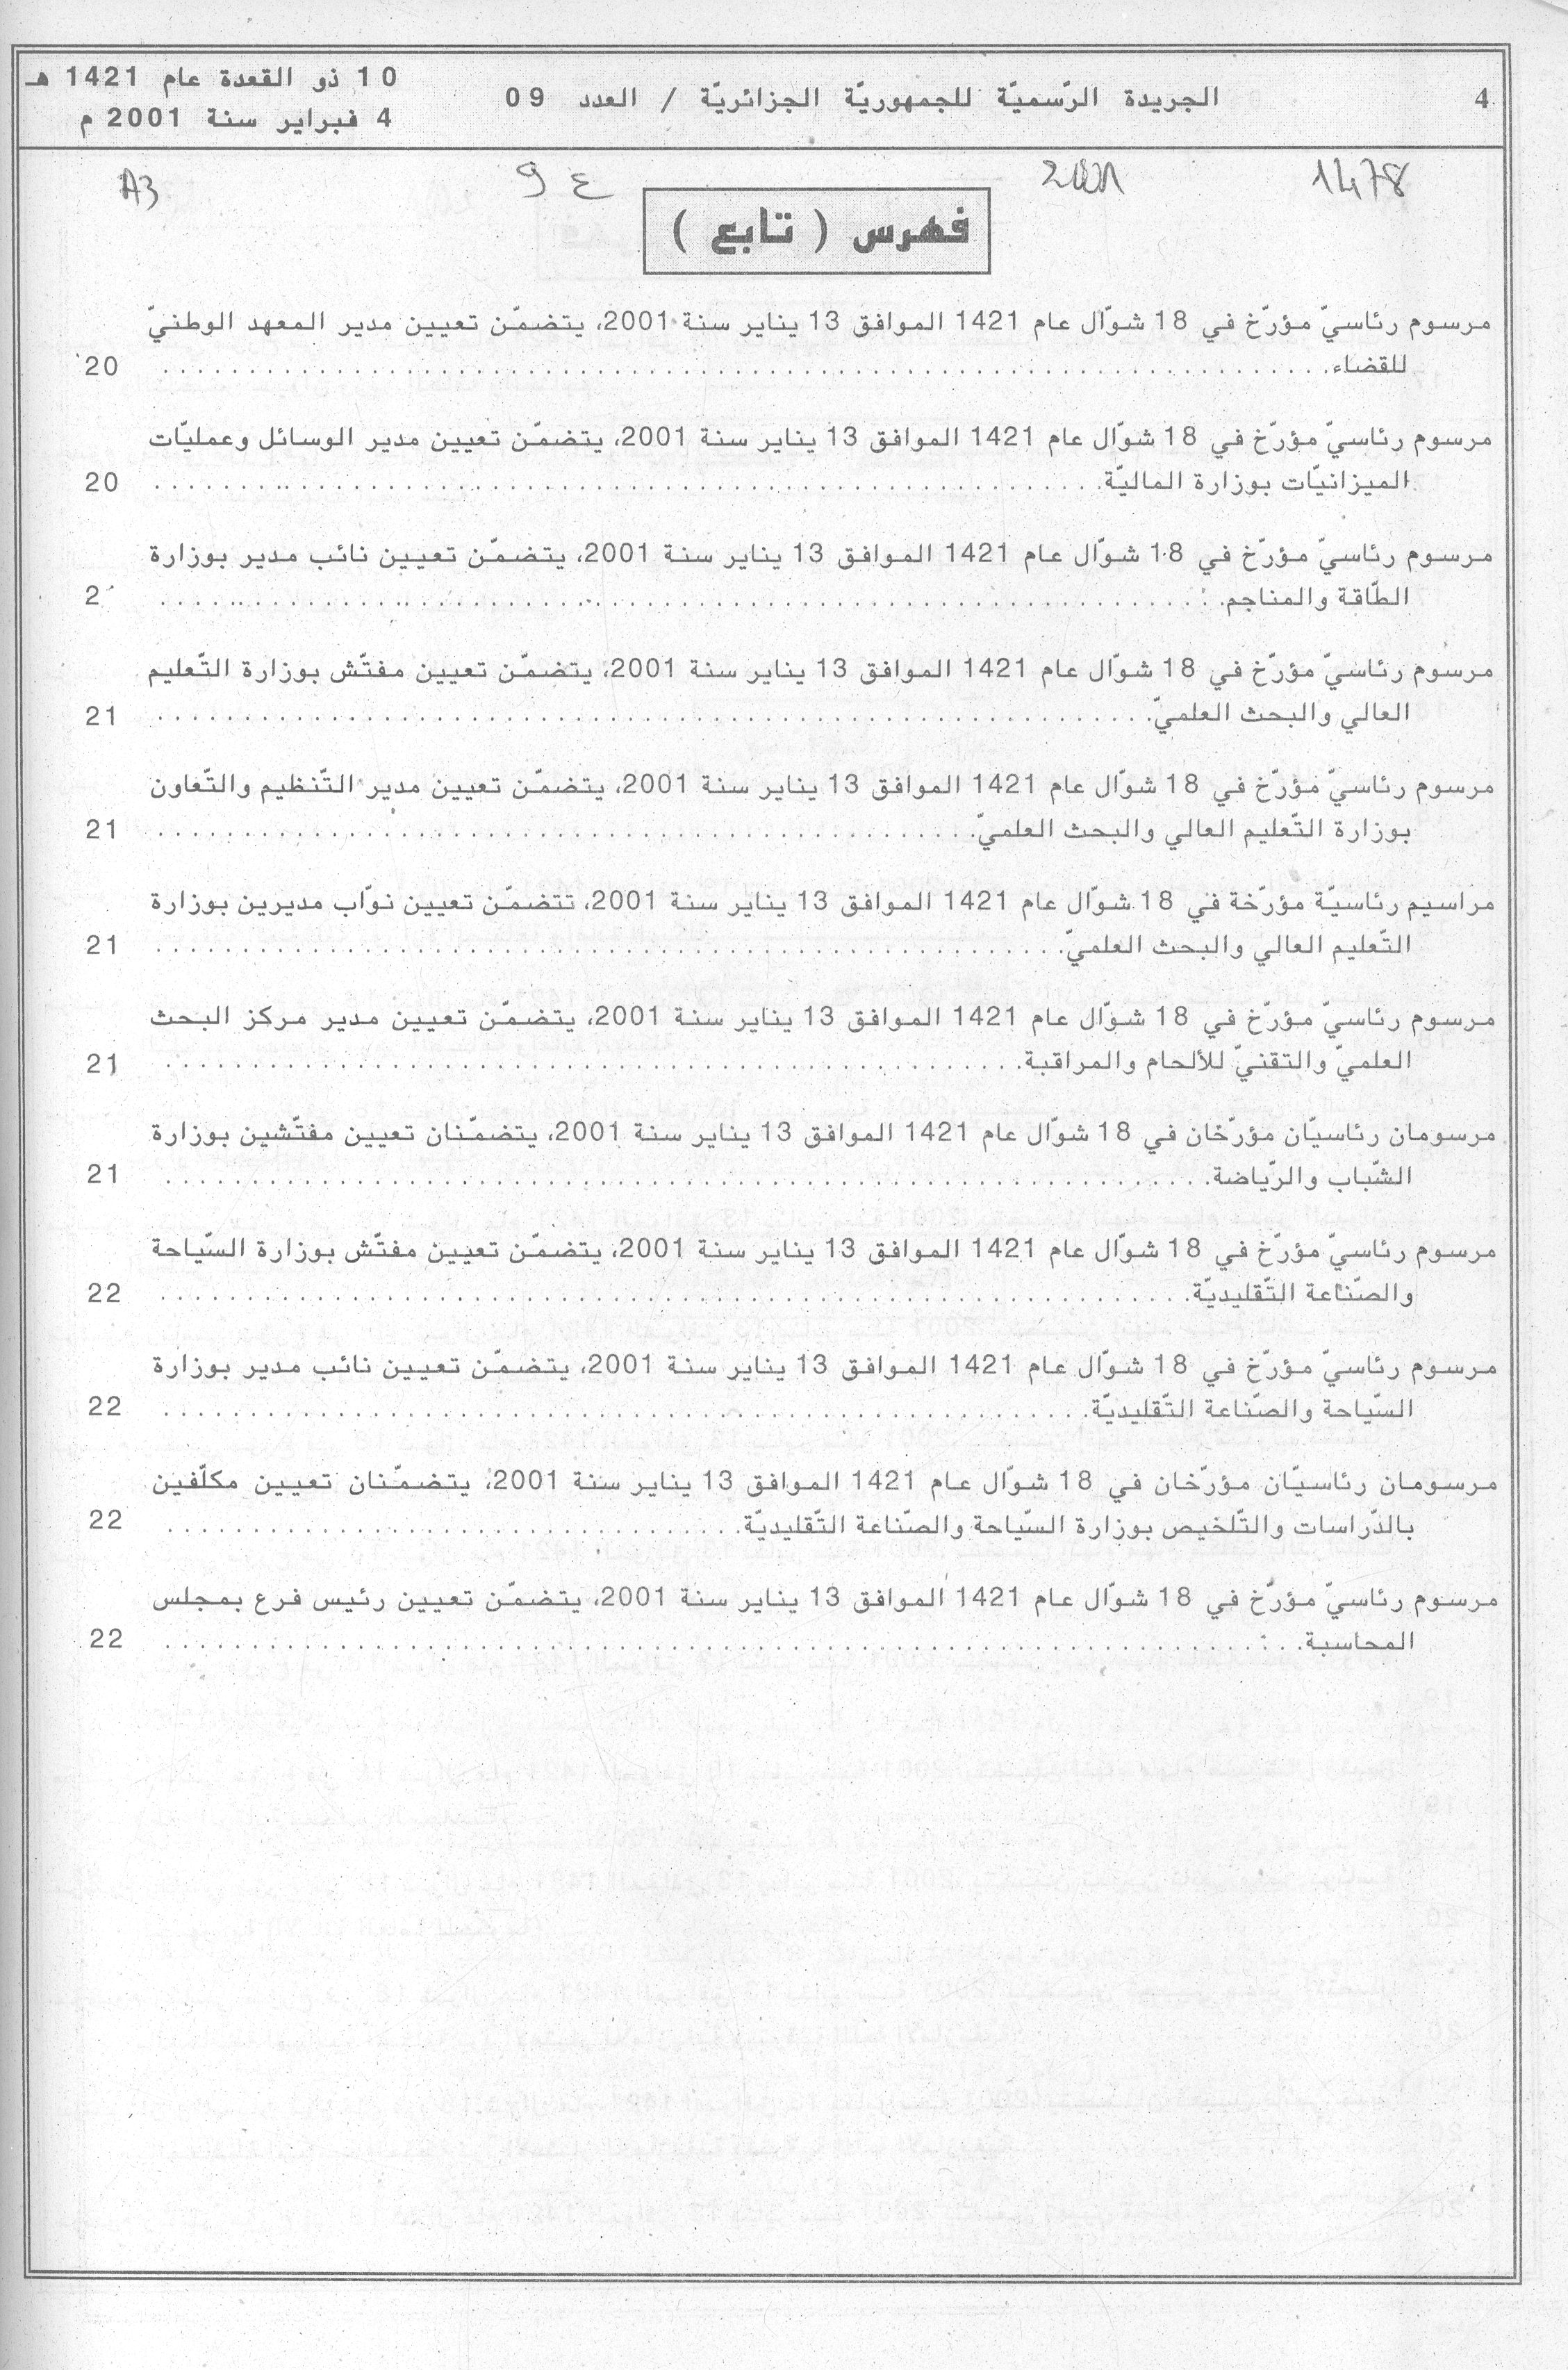 4
الجريدة الرّسميّة للجمهوريّة الجزائريّة / العدد 09
10 ذو القعدة عام 1421 هـ
4 فبراير سنة 2001 م
1478
2001
9 ع
A3
فهرس ( تابع )
مرسوم رئاسيّ مؤرّخ في 18 شوّال عام 1421 الموافق 13 يناير سنة 2001، يتضمّن تعيين مدير المعهد الوطنيّ
للقضاء. 20
مرسوم رئاسيّ مؤرّخ في 18 شوّال عام 1421 الموافق 13 يناير سنة 2001، يتضمّن تعيين مدير الوسائل وعمليّات
الميزانيّات بوزارة الماليّة. 20
مرسوم رئاسيّ مؤرّخ في 18 شوّال عام 1421 الموافق 13 يناير سنة 2001، يتضمّن تعيين نائب مدير بوزارة
الطّاقة والمناجم. 2
مرسوم رئاسيّ مؤرّخ في 18 شوّال عام 1421 الموافق 13 يناير سنة 2001، يتضمّن تعيين مفتّش بوزارة التّعليم
العالي والبحث العلميّ. 21
مرسوم رئاسيّ مؤرّخ في 18 شوّال عام 1421 الموافق 13 يناير سنة 2001، يتضمّن تعيين مدير التّنظيم والتّعاون
بوزارة التّعليم العالي والبحث العلميّ. 21
مراسيم رئاسيّة مؤرّخة في 18 شوّال عام 1421 الموافق 13 يناير سنة 2001، تتضمّن تعيين نوّاب مديرين بوزارة
التّعليم العالي والبحث العلميّ. 21
مرسوم رئاسيّ مؤرّخ في 18 شوّال عام 1421 الموافق 13 يناير سنة 2001، يتضمّن تعيين مدير مركز البحث
العلميّ والتقنيّ للألحام والمراقبة. 21
مرسومان رئاسيّان مؤرّخان في 18 شوّال عام 1421 الموافق 13 يناير سنة 2001، يتضمّنان تعيين مفتّشين بوزارة
الشّباب والرّياضة. 21
مرسوم رئاسيّ مؤرّخ في 18 شوّال عام 1421 الموافق 13 يناير سنة 2001، يتضمّن تعيين مفتّش بوزارة السّياحة
والصّناعة التّقليديّة. 22
مرسوم رئاسيّ مؤرّخ في 18 شوّال عام 1421 الموافق 13 يناير سنة 2001، يتضمّن تعيين نائب مدير بوزارة
السّياحة والصّناعة التّقليديّة. 22
مرسومان رئاسيّان مؤرّخان في 18 شوّال عام 1421 الموافق 13 يناير سنة 2001، يتضمّنان تعيين مكلّفين
بالدّراسات والتّلخيص بوزارة السّياحة والصّناعة التّقليديّة. 22
مرسوم رئاسيّ مؤرّخ في 18 شوّال عام 1421 الموافق 13 يناير سنة 2001، يتضمّن تعيين رئيس فرع بمجلس
المحاسبة. 22